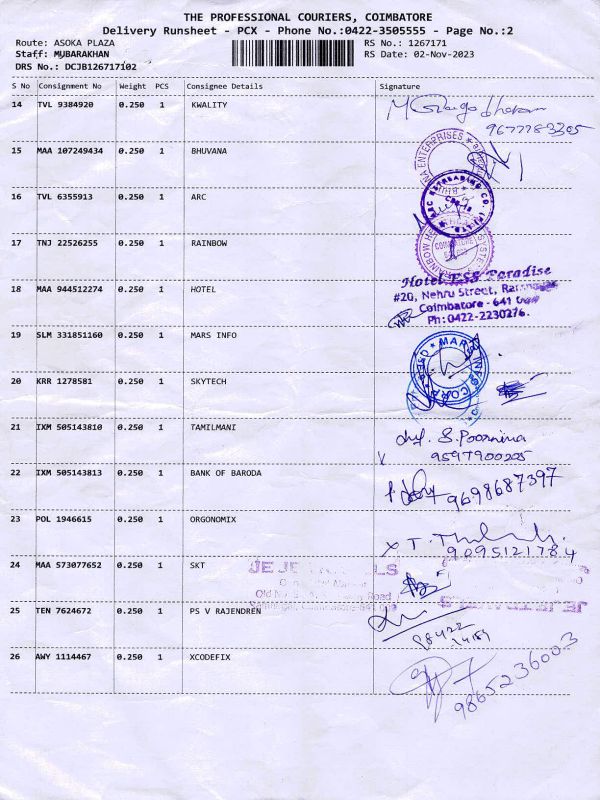 THE PROFESSIONAL COURIERS, COIMBATORE
Delivery Runsheet - PCX - Phone No.:0422-3505555 - Page No.:2
Route: ASOKA PLAZA
Staff: MUBARAKHAN
DRS No.: DCJB126717102
RS No.: 1267171
RS Date: 02-Nov-2023
S No Consignment No Weight PCS Consignee Details Signature
14 TVL 9384920 0.250 1 KWALITY
9677783305
15 MAA 107249434 0.250 1 BHUVANA
ENTERPRISES
16 TVL 6355913 0.250 1 ARC
ARC RETREADING CO.
17 TNJ 22526255 0.250 1 RAINBOW
RAINBOW
COIMBATORE
18 MAA 944512274 0.250 1 HOTEL
Hotel ESS Paradise
#20, Nehru Street,
Coimbatore - 641
Ph: 0422-2230276.
19 SLM 331851160 0.250 1 MARS INFO
MARS INFO CORP
20 KRR 1278581 0.250 1 SKYTECH
21 IXM 505143810 0.250 1 TAMILMANI
S. Poornima
9597900205
22 IXM 505143813 0.250 1 BANK OF BARODA
9698687397
23 POL 1946615 0.250 1 ORGONOMIX
9095121784
24 MAA 573077652 0.250 1 SKT
25 TEN 7624672 0.250 1 PS V RAJENDREN
98422
26 AWY 1114467 0.250 1 XCODEFIX
9865236003